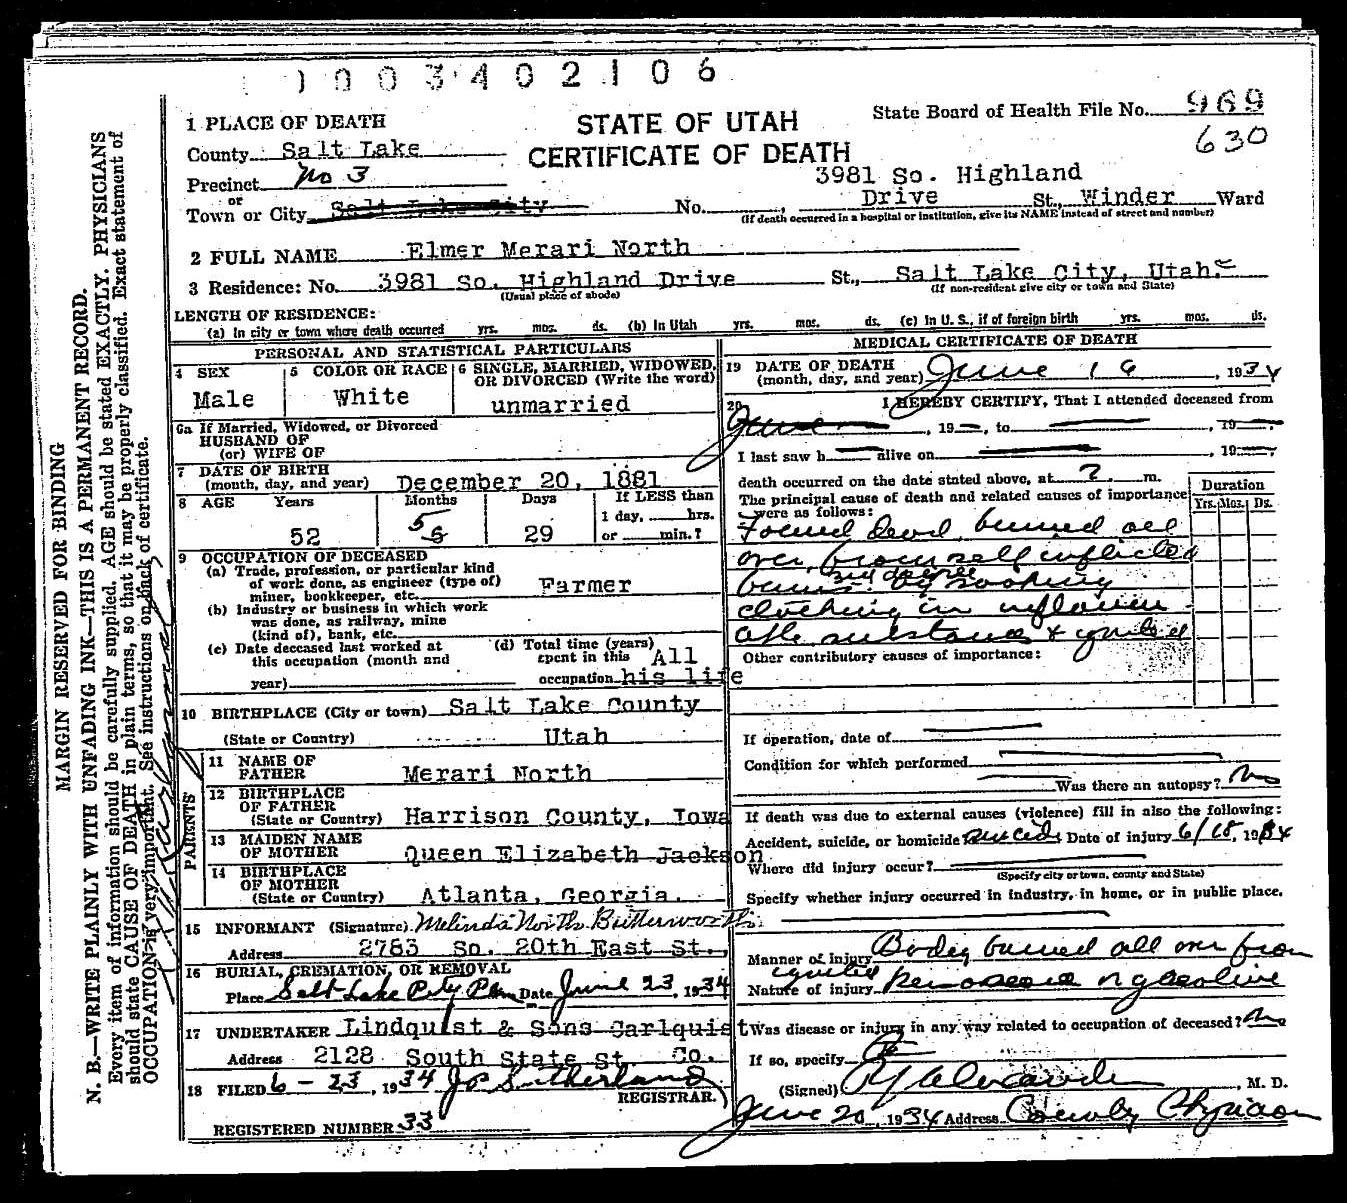 1003402106
1 PLACE OF DEATH
STATE OF UTAH
State Board of Health File No. 969
630
County Salt Lake
CERTIFICATE OF DEATH
Precinct No 3
3981 So. Highland
or
Town or City Salt Lake City No. Drive St., Winder Ward
(If death occurred in a hospital or institution, give its NAME instead of street and number)
2 FULL NAME Elmer Merari North
3 Residence: No. 3981 So. Highland Drive St., Salt Lake City, Utah.
(Usual place of abode) (If non-resident give city or town and State)
LENGTH OF RESIDENCE:
(a) In city or town where death occurred yrs. mos. ds. (b) In Utah yrs. mos. ds. (c) In U. S., if of foreign birth yrs. mos. ds.
PERSONAL AND STATISTICAL PARTICULARS
4 SEX
Male
5 COLOR OR RACE
White
6 SINGLE, MARRIED, WIDOWED,
OR DIVORCED (Write the word)
unmarried
6a If Married, Widowed, or Divorced
HUSBAND OF
(or) WIFE OF
7 DATE OF BIRTH
(month, day, and year) December 20, 1881
8 AGE Years Months Days If LESS than
1 day, hrs.
52 5 6 29 or min.?
9 OCCUPATION OF DECEASED
(a) Trade, profession, or particular kind
of work done, as engineer (type of)
miner, bookkeeper, etc. Farmer
(b) Industry or business in which work
was done, as railway, mine
(kind of), bank, etc.
(c) Date deceased last worked at
this occupation (month and
year)
(d) Total time (years)
spent in this All
occupation his life
10 BIRTHPLACE (City or town) Salt Lake County
(State or Country) Utah
PARENTS
11 NAME OF
FATHER Merari North
12 BIRTHPLACE
OF FATHER
(State or Country) Harrison County, Iowa
13 MAIDEN NAME
OF MOTHER Queen Elizabeth Jackson
14 BIRTHPLACE
OF MOTHER
(State or Country) Atlanta, Georgia.
15 INFORMANT (Signature) Melinda North Butterworth
Address 2783 So. 20th East St.,
16 BURIAL, CREMATION, OR REMOVAL
Place Salt Lake City Date June 23, 1934
17 UNDERTAKER Lindquist & Sons Carlquist
Address 2128 South State St. Co.
18 FILED 6-23, 1934 J P Sutherland
REGISTRAR.
REGISTERED NUMBER 33
MEDICAL CERTIFICATE OF DEATH
19 DATE OF DEATH
(month, day, and year) June 16, 1934
20 I HEREBY CERTIFY, That I attended deceased from
June , 19 , to , 19
I last saw h alive on , 19
death occurred on the date stated above, at ? m.
The principal cause of death and related causes of importance
were as follows:
Duration
Yrs. Mos. Ds.
Found dead, burned all
over, from self inflicted
3rd degree
burns by soaking
clothing in inflamm
able substance & ignited
Other contributory causes of importance:
If operation, date of
Condition for which performed
Was there an autopsy? No
If death was due to external causes (violence) fill in also the following:
Accident, suicide, or homicide suicide Date of injury 6/18, 1934
Where did injury occur?
(Specify city or town, county and State)
Specify whether injury occurred in industry, in home, or in public place.
Manner of injury Body burned all over from
ignited
Nature of injury kerosene or gasoline
Was disease or injury in any way related to occupation of deceased? No
If so, specify
(Signed) Alexander, M. D.
June 20, 1934 Address County Physician
MARGIN RESERVED FOR BINDING
N. B.—WRITE PLAINLY WITH UNFADING INK—THIS IS A PERMANENT RECORD.
Every item of information should be carefully supplied. AGE should be stated EXACTLY. PHYSICIANS
should state CAUSE OF DEATH in plain terms, so that it may be properly classified. Exact statement of
OCCUPATION is very important. See instructions on back of certificate.